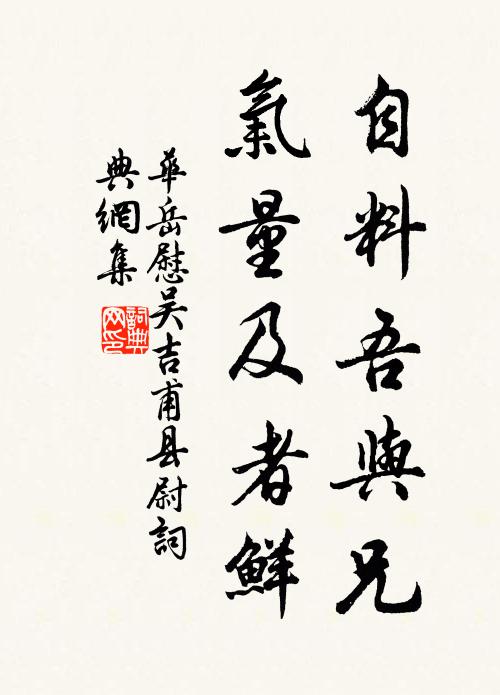 自料吾與兄
氣量及者鮮
華岳慰吴吉甫县尉詞
典網集
詞典网印